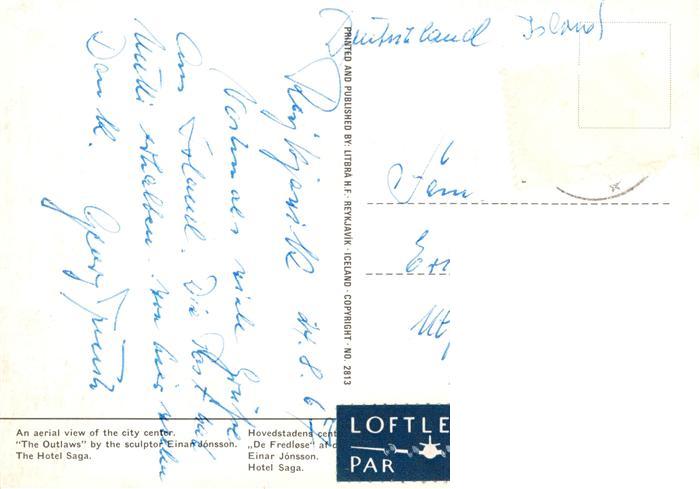 Deutschland Island
PRINTED AND PUBLISHED BY: LITBRÁ H.F · REYKJAVÍK · ICELAND · COPYRIGHT · NO. 2813
Reykjavik 24.8.6
Nochmals viele Grüße
aus Island. Die Post
Mutti erhalten. von hier vielen
Dank. Georg
Fam.
An aerial view of the city center.
"The Outlaws" by the sculptor Einar Jónsson.
The Hotel Saga.
Hovedstadens cent
„De Fredløse" af
Einar Jónsson.
Hotel Saga.
LOFTLE
PAR